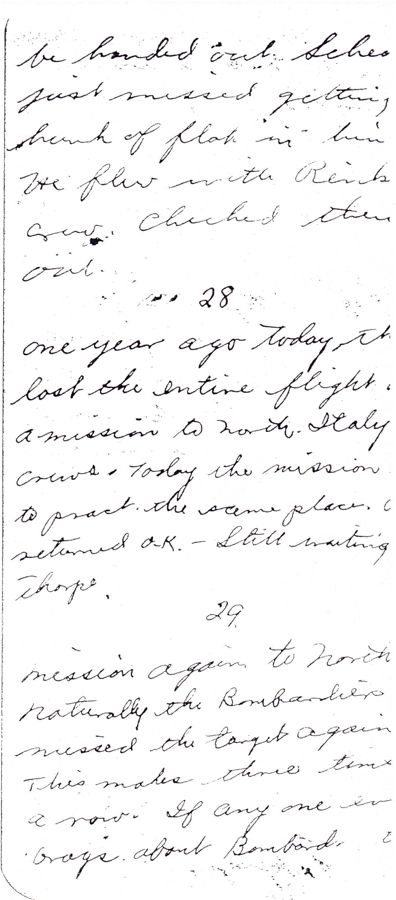 be handed out. Sche
just missed getting
hunk of flak in him
He flew with Rink
crew. Checked them
out.
28
one year ago today, th
lost the entire flight
a mission to north. Italy
crews. Today the mission
to pract. the same place.
returned O.K. - Still waiting
Thorpe.
29
mission again to north
naturally the Bombardier
missed the target again
This makes three time
a row. If any one ev
brags about Bombard.